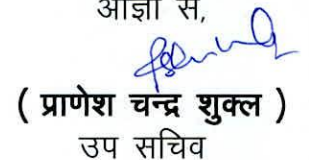 आज्ञा से,
( प्राणेश चन्द्र शुक्ल )
उप सचिव